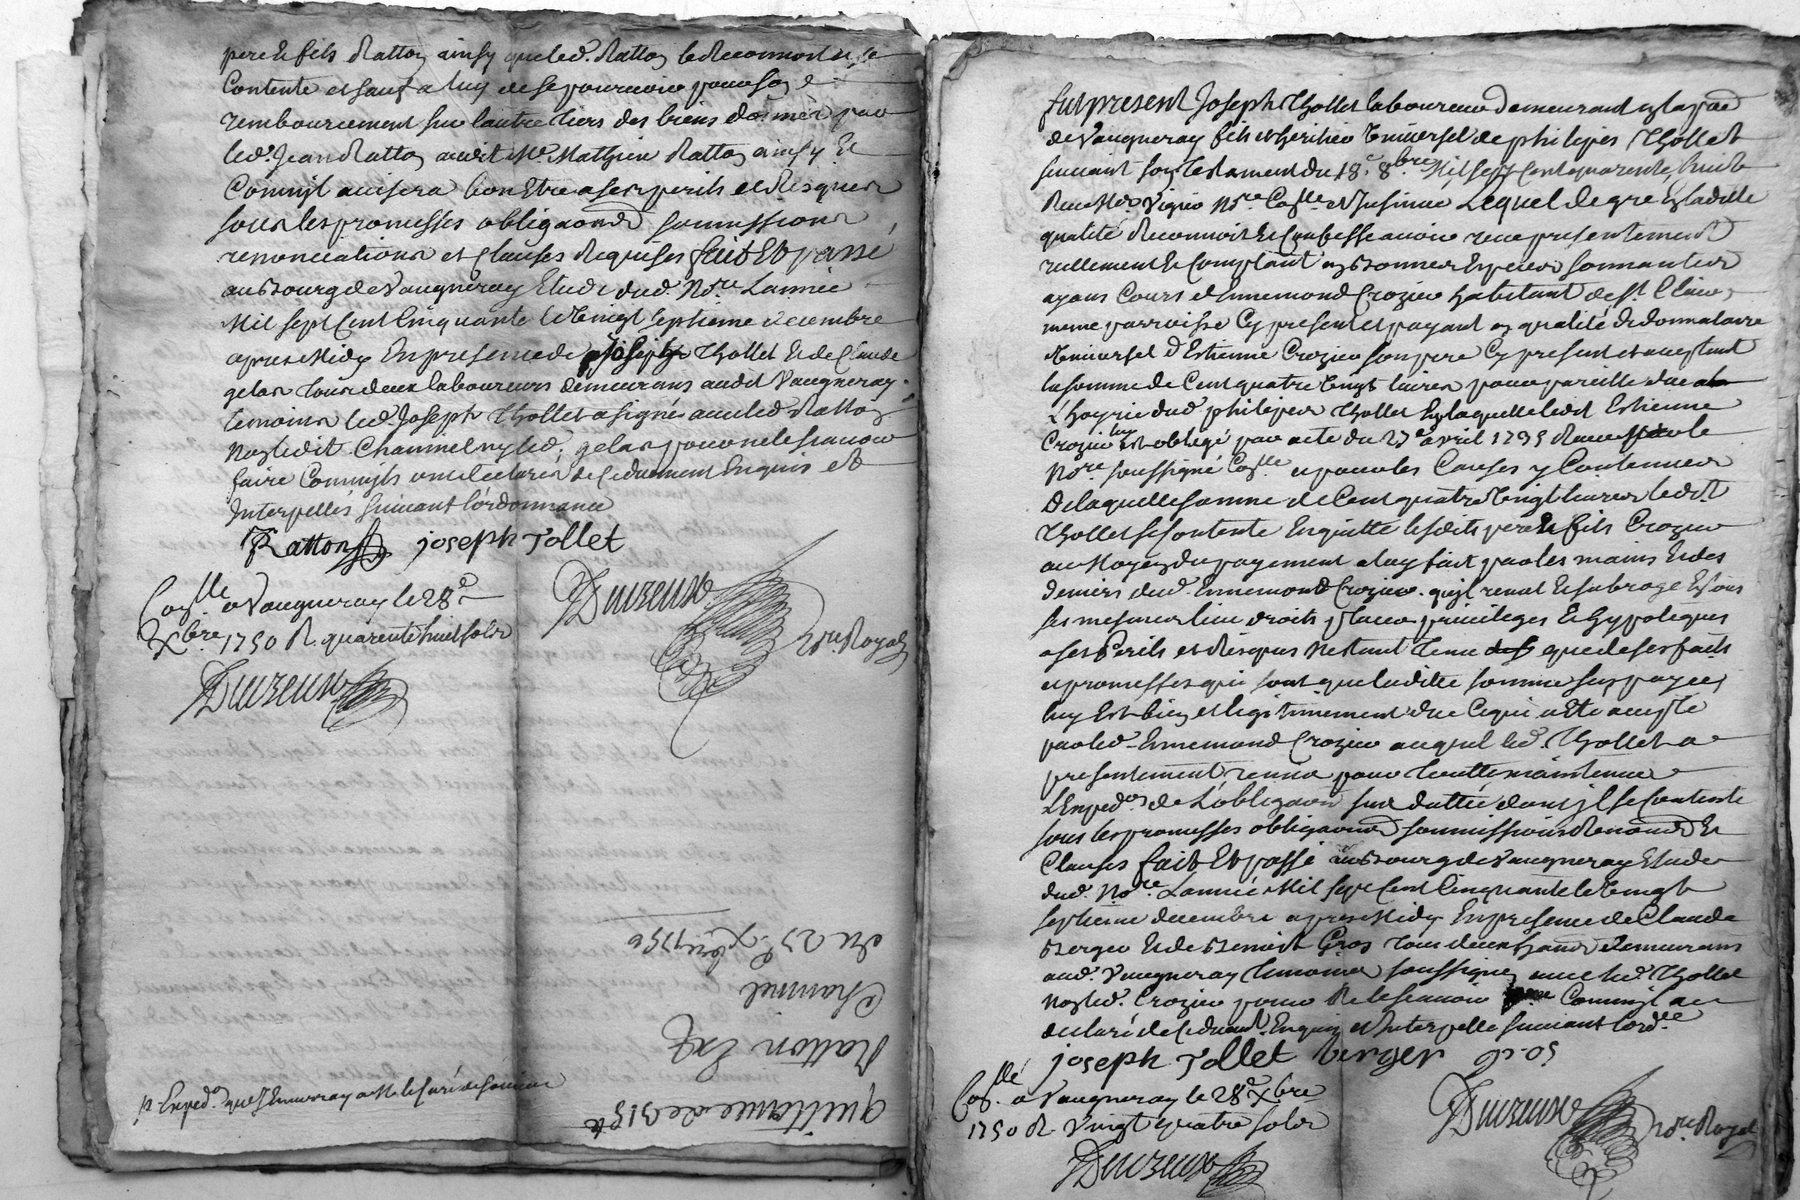 pere & fils Ratton ainsy que led. Ratton le Reconnoit et se
Contente et sauf a luy de se pourvoir pour son
remboursement sur l'autre tiers des biens donnés par
led. Jean Ratton audit Me. Mathieu Ratton ainsy &
Commjl avisera bon Etre a ses perils et Risques
sous les promesses obligaons soumissions
renonciations et Clauses Requises fait Et passé
au Bourg de Vaugneray Etude dud. Nore. L'année
Mil sept Cent Cinquante le Vingt septieme decembre
apres Midy En presence de Joseph Thollet Et de Claude
gelas tous deux laboureurs demeurans audit Vaugneray
temoins led. Joseph Thollet a signé avec led. Ratton
Non ledit Chammel ny led. gelas pour ne le scavoir
faire Commjls ont declaré de ce duement Enquis et
Interpellés suivant l'ordonnance
Ratton joseph Tollet
Conlle. a Vaugneray le 28e
Xbre. 1750 R. quarente huit sols
Duvreux Nre. Royal
Duvreux
1e Exped. que j'Ennvoyay a M. le Curé de
quittance de 315 lt
Ratton Exp
Chammel
du 27. Xbre 1750
fut present Joseph Thollet laboureur demeurant en la parr.
de Vaugneray fils et heritier Universel de philipes Thollet
suivant son testament du 18e. 8bre. Mil sept Cent quarente huit
Receu Me. Vigier Nre. Conlle et Jnsinué Lequel de gré En ladite
qualité Reconnoit Et Confesse avoir receu presentement
reellement Et Comptant en Bonnes Especes sonnantes
ayans Cours d'Ennemond Crozier habitant de St. Clair,
meme parroisse Cy present et payant en qualité de donnataire
Universel d'Estienne Crozier son pere Cy present et acceptant
la somme de Cent quatre Vingt livres pour pareille due a
L'hoyrie dud. philipes Thollet En laquelle ledit Estienne
Crozier s'est obligé par acte du 27e. avril 1735 Receu par le
Nore. soussigné Conlle et pour les Causes y Contenues
De laquelle somme de Cent quatre Vingt livres ledit
Thollet se Contente En quitte lesdits pere & fils Crozier
au Moyen du payement a luy fait par les mains Et des
deniers dud. Ennemond Crozier qu'jl remet Et subroge En tous
ses mesmes lieu droits place privileges Et hypoteques
a ses Perils et Risques N'etant tenu que de ses faits
et promesses qui sont que ladite somme sus payée
luy Est bien et legitimement due Ce qui a Eté accepté
par led. Ennemond Crozier auquel led. Thollet a
presentement remis pour toutte maintenue
L'Exped.on de L'obligaon sus dattée dont jl se Contente
sous les promesses obligaons soumissions Renonons &
Clauses fait Et passé au Bourg de Vaugneray Etude
dud. Nore. L'année Mil sept Cent Cinquante le Vingt
septieme decembre apres Midy En presence de Claude
Berger Et de Benoist Gros tous deux demeurans
aud. Vaugneray temoins soussignés avec led. Thollet
Non led. Crozier pour Ne le scavoir Commjl a
declaré de ce duemt. Enquis et Interpellé suivant l'ordce.
joseph Tollet berger gros
Conlle. a Vaugneray le 28e. Xbre
1750 R. Vingt quatre sols
Duvreux Nre. Royal
Duvreux